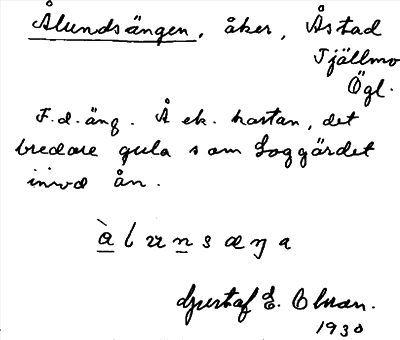 Ålundsängen, åker, Åstad
Tjällmo
Ögl.
F.d. äng. Å ek. kartan, det
bredare gula som Loggärdet
invid ån.
Gustaf E. Olsson.
1930